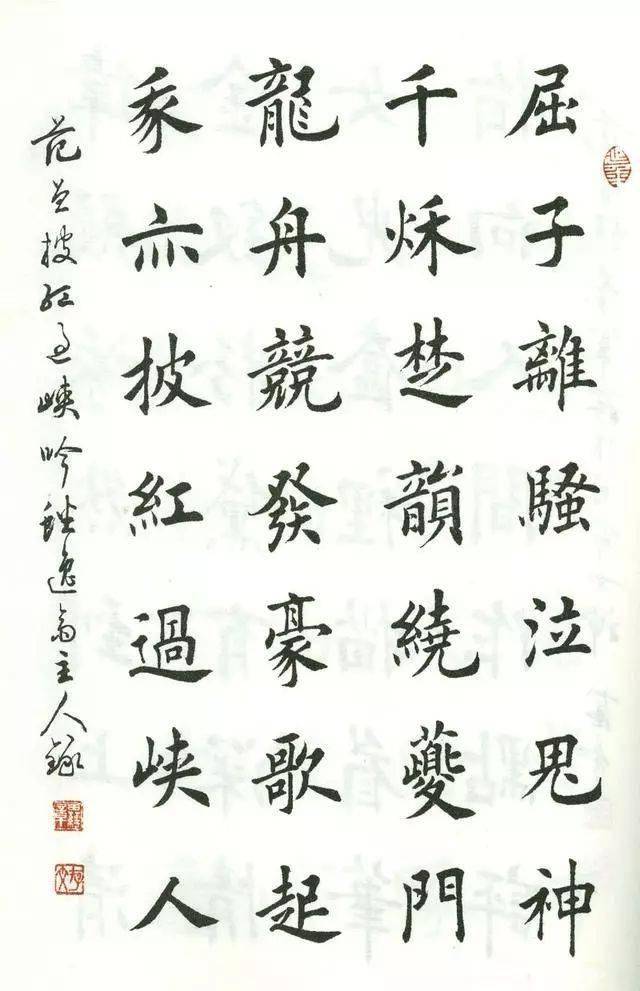 屈子離騷泣鬼神
千秌楚韻繞夔門
龍舟競發豪歌起
我亦披紅過峽人
范披紅過峽吟逸翁主人錄